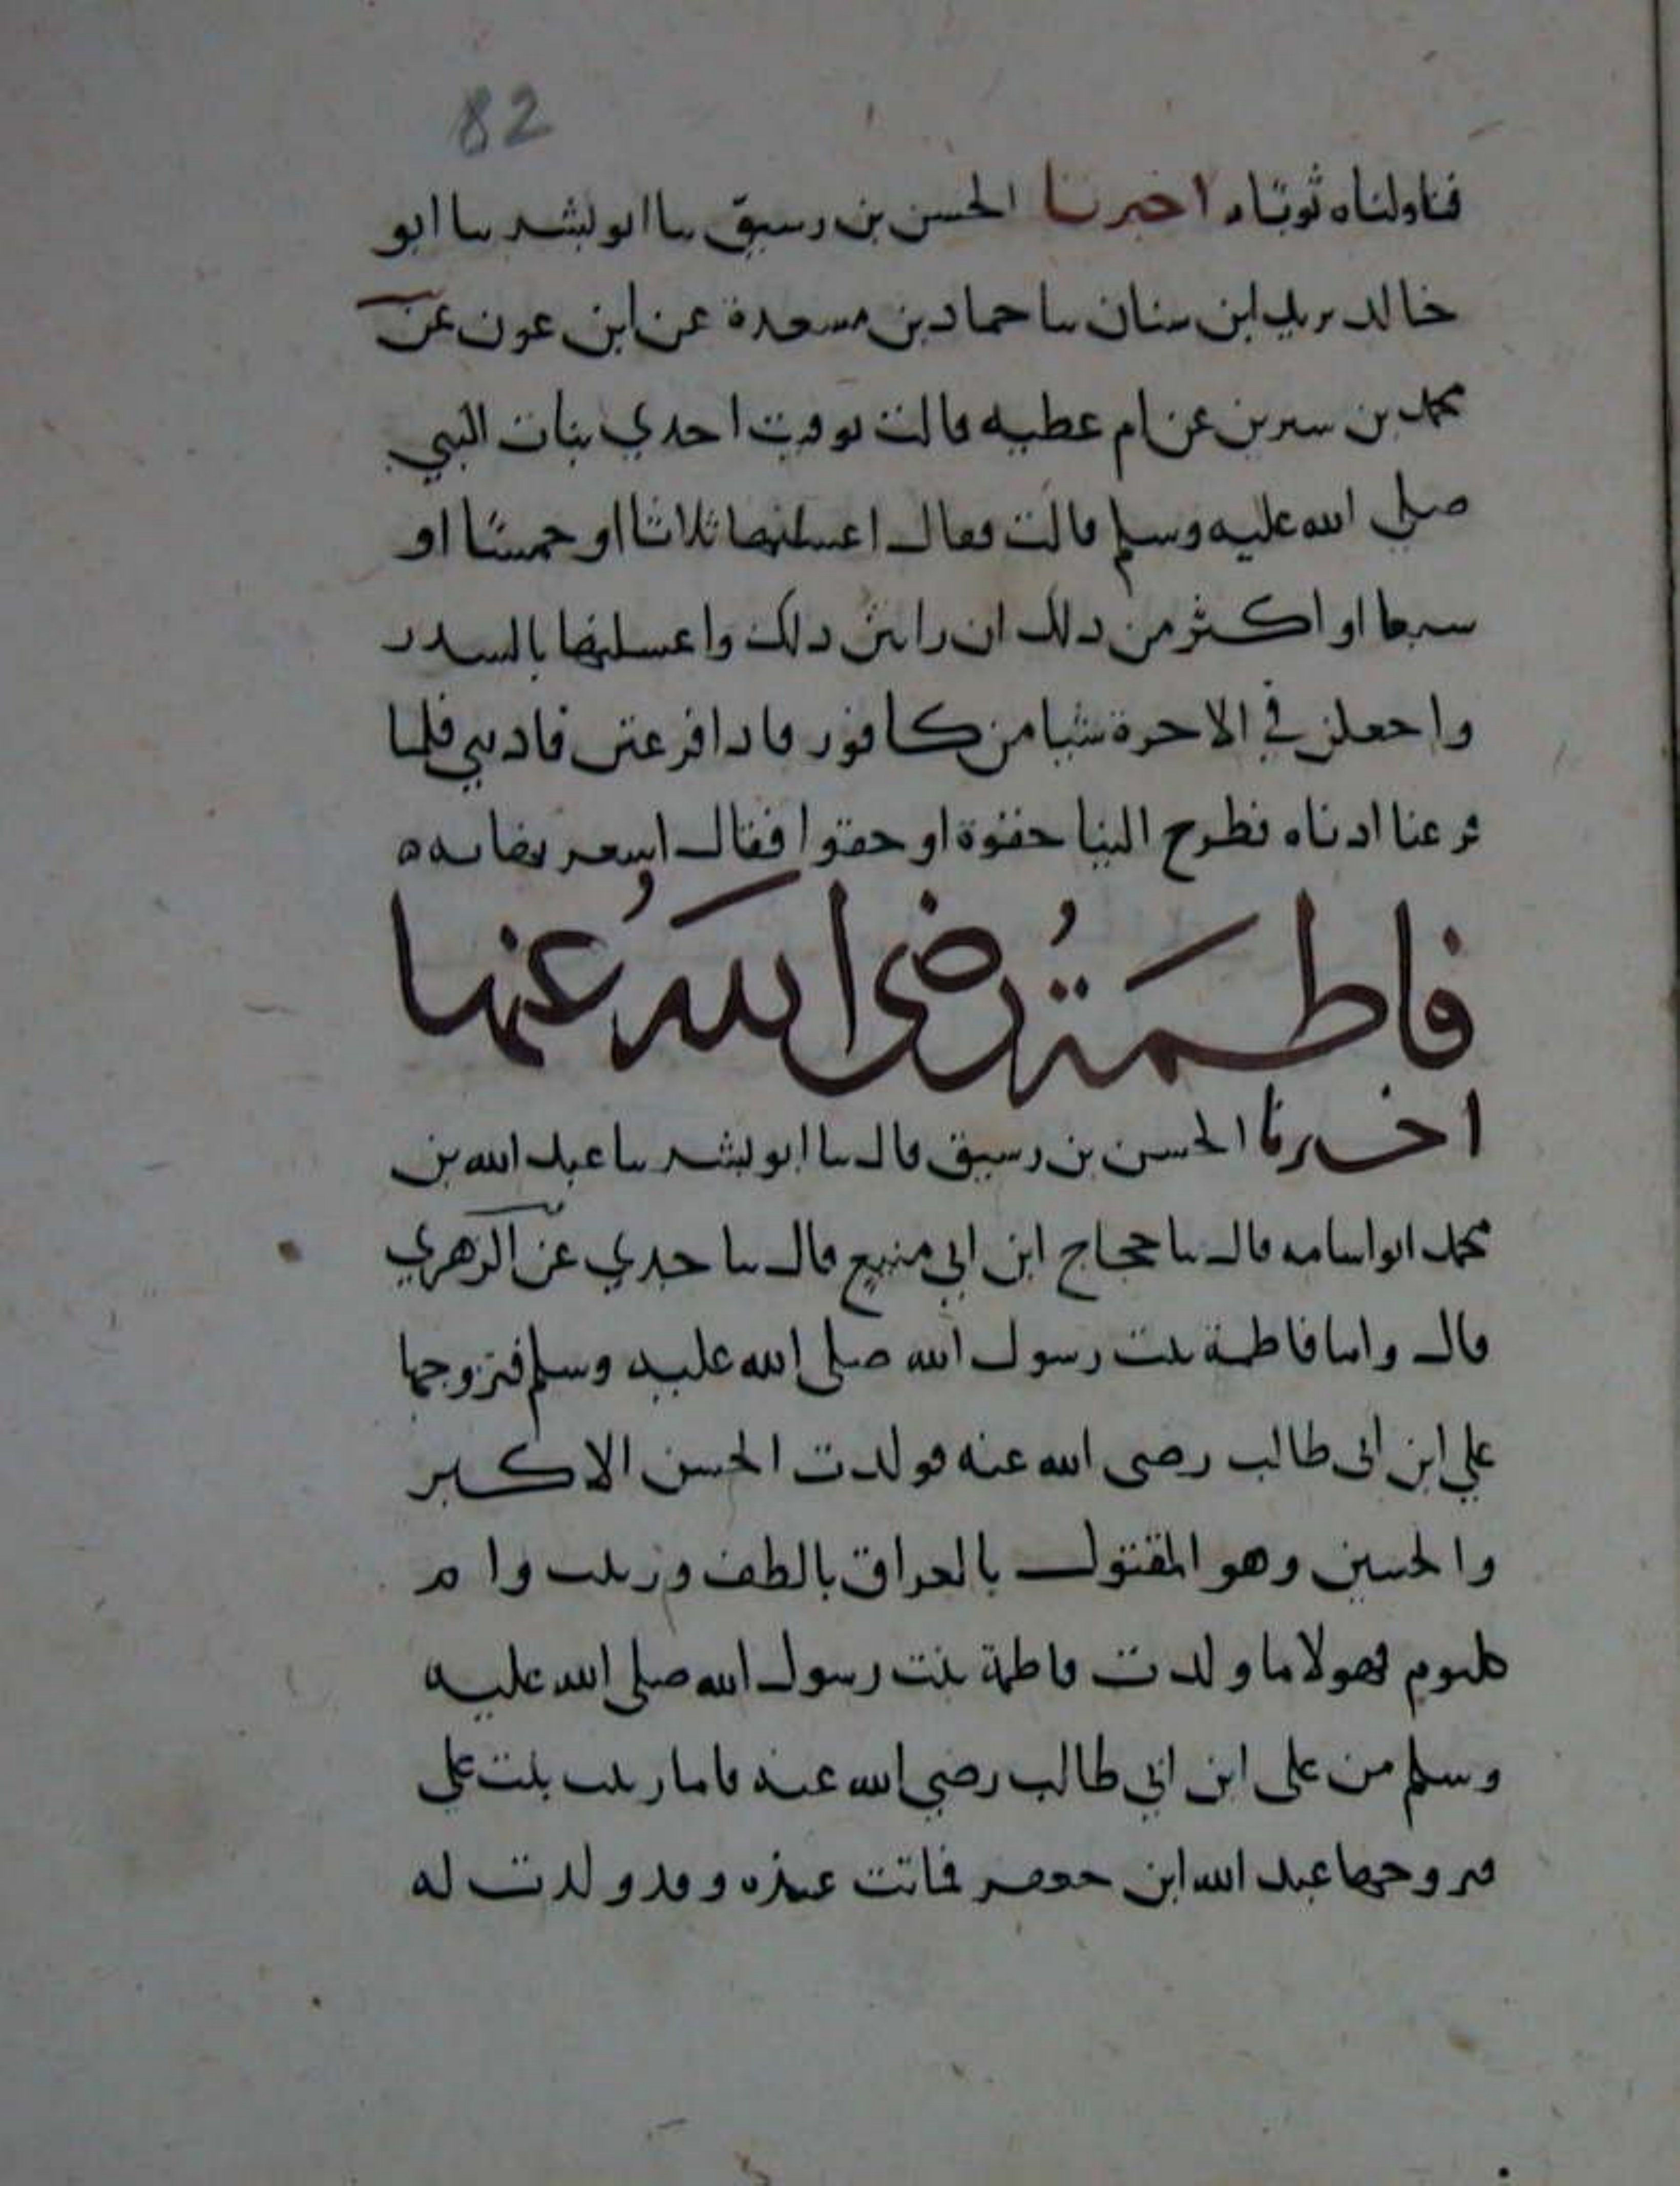 82
فناولناه ثوباه اخبرنا الحسن بن رسيق نا ابو بشر نا ابو
خالد يزيد ابن سنان نا حماد بن مسعدة عن ابن عون عن
محمد بن سيرين عن ام عطيه قالت توفيت احدي بنات النبي
صلي الله عليه وسلم قالت فقال اغسلنها ثلاثا او خمسا او
سبعا او اكثر من ذلك ان راتن ذلك واغسلنها بالسدر
واجعلن في الاخرة شيا من كافور فاذا فرغتن فاذنني فلما
فرغنا اذناه فطرح الينا حقوة او حقوا فقال اشعرنها به ه
فاطمة رضى الله عنها
اخبرنا الحسن بن رسيق قال نا ابو بشر نا عبد الله بن
محمد ابو اسامه قال نا حجاج ابن ابي منيع قال نا جدي عن الزهري
قال واما فاطمة بنت رسول الله صلى الله عليه وسلم فتزوجها
علي ابن ابى طالب رضى الله عنه فولدت الحسن الاكبر
والحسين وهو المقتول بالعراق بالطف وزينب وام
كلثوم فهولا ما ولدت فاطمة بنت رسول الله صلى الله عليه
وسلم من على ابن ابي طالب رضي الله عنه فاما زينب بنت علي
فتزوجها عبد الله ابن جعفر فماتت عنده وقد ولدت له